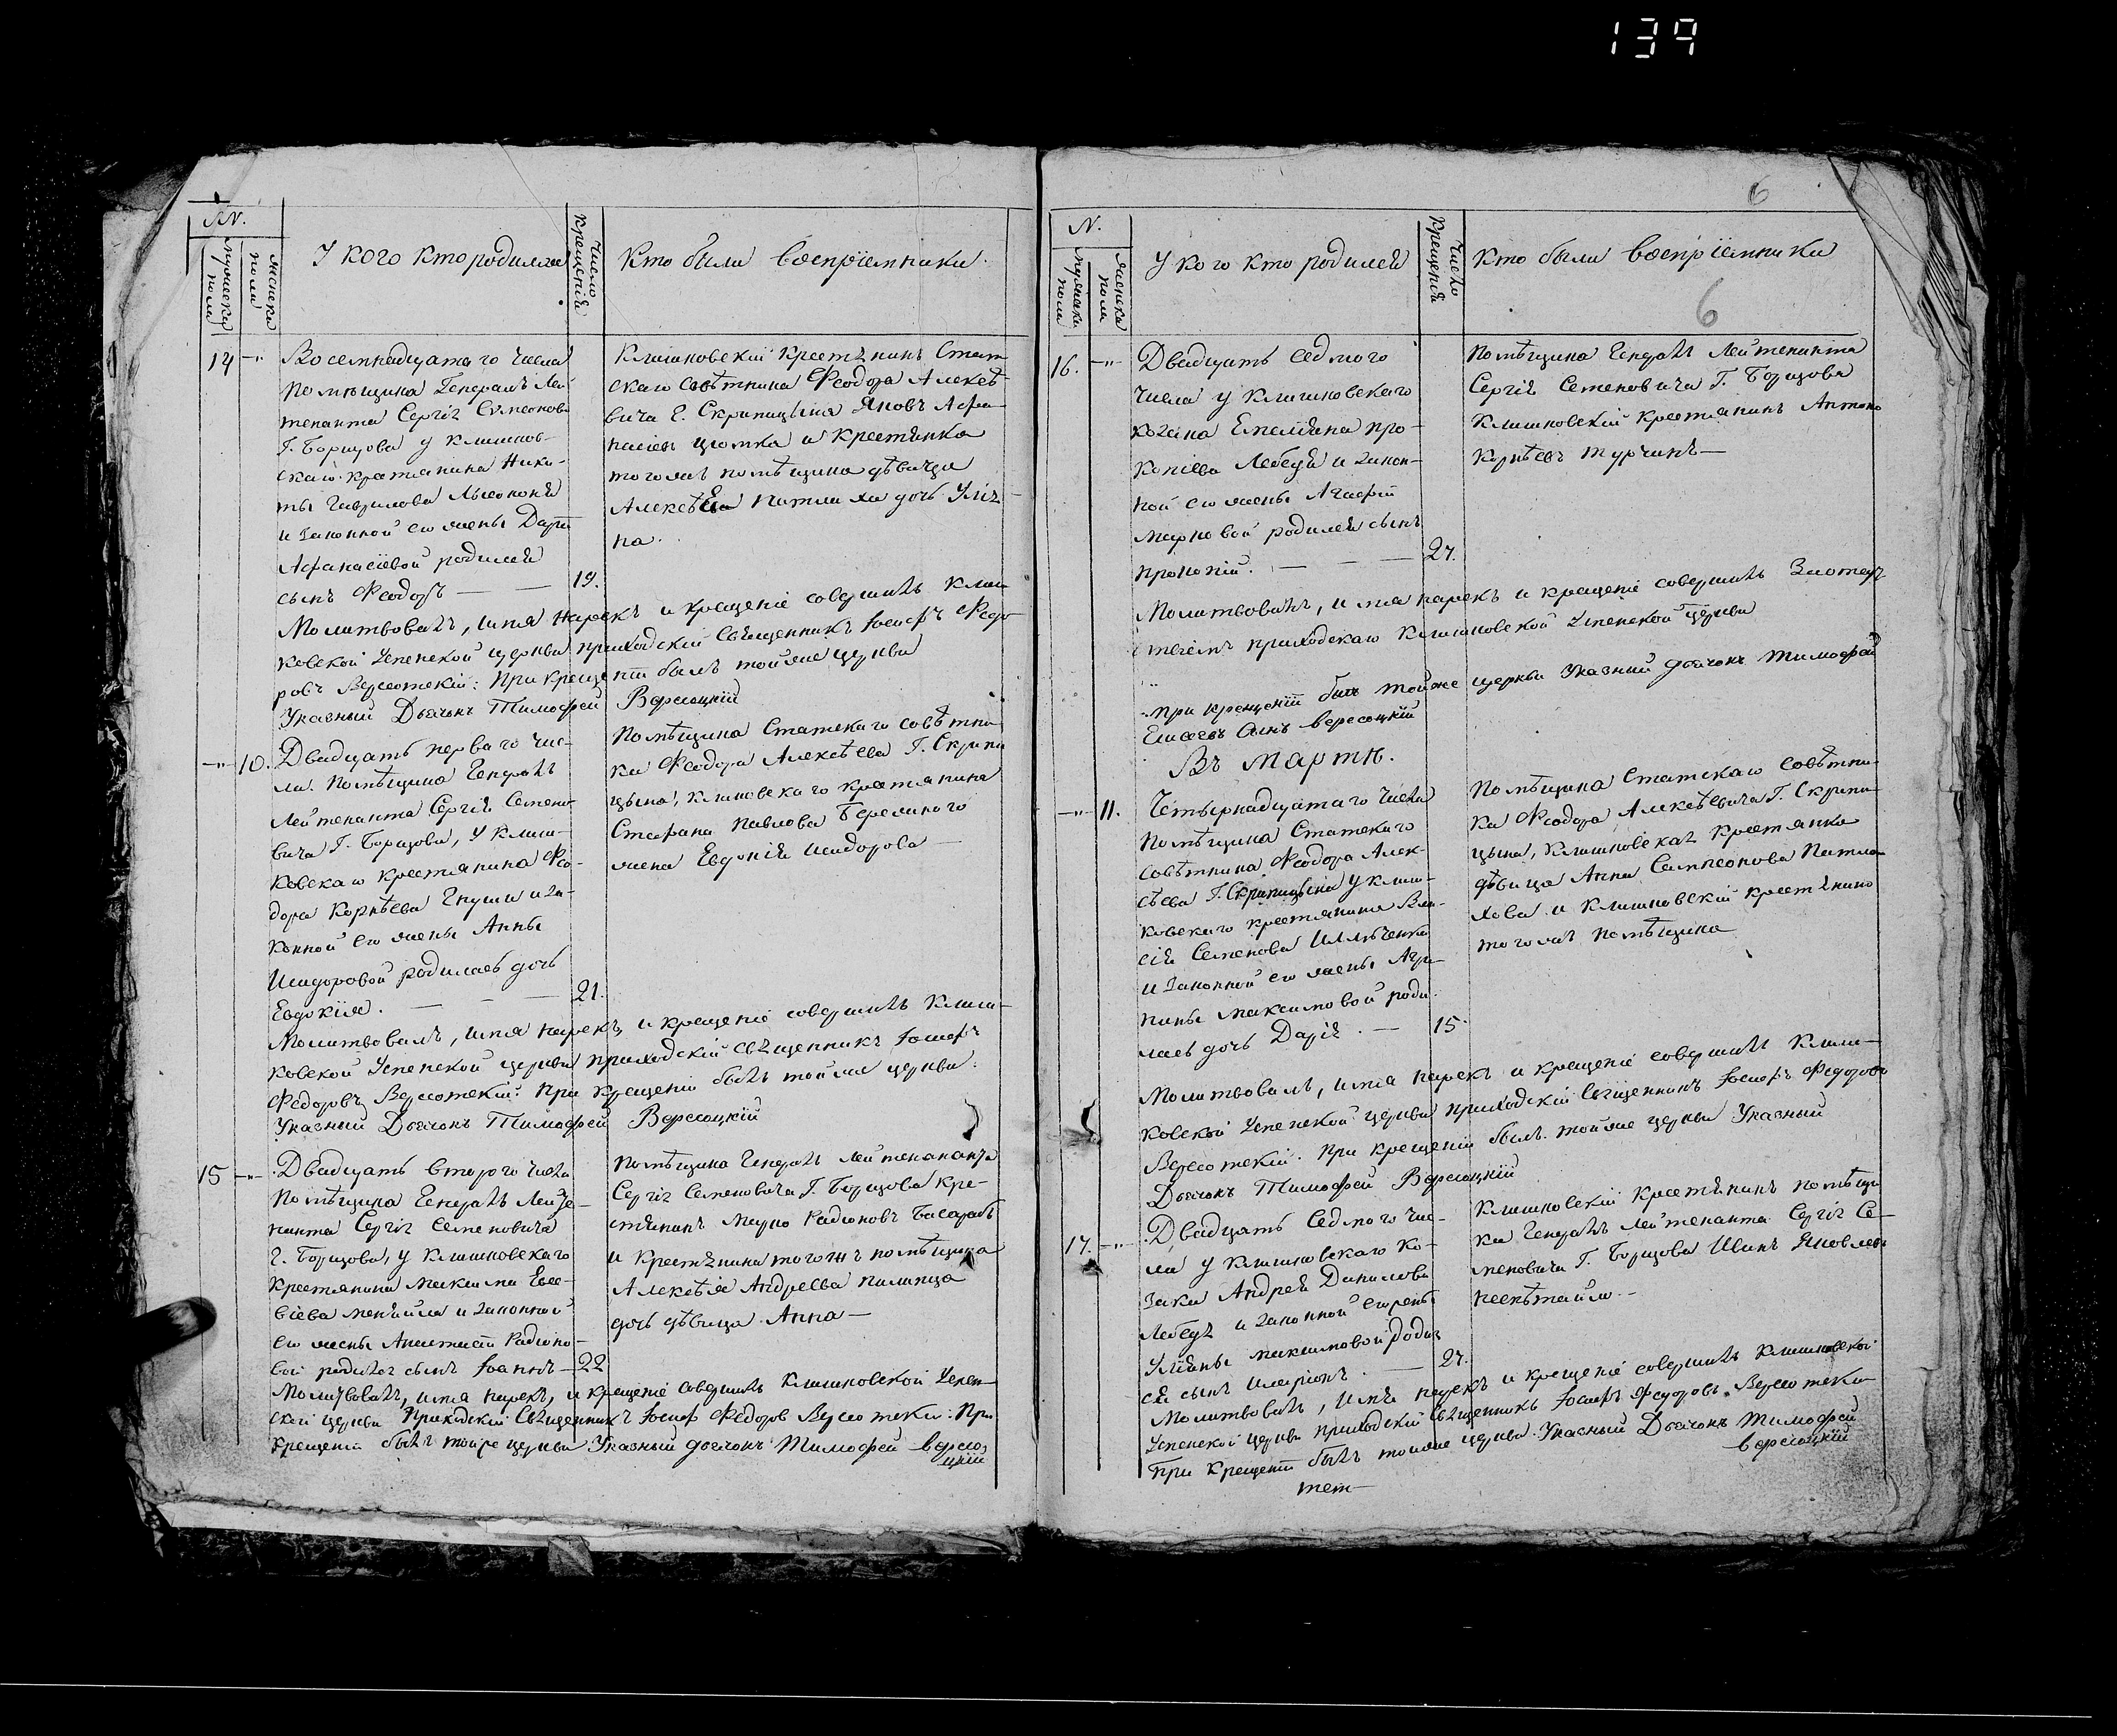 139
6
№.
мужеска пола
женска пола
У кого кто родился
Число крещенія
Кто были воспріемники.
14
Восемнадцатаго числа
помѣщика Генералъ Лей-
тенанта Сергія Симеонова
Г. Борщова у Клишков-
скаго крестянина Ники-
ты Гаврилова
и законной его жены Даріи
Афанасіевой родился
сынъ Феодоръ — — 19.
Клишковскій крестянинъ Стат
скаго совѣтника Феодора Алексѣ
вича Г. Скрипицына Яковъ Афа-
насіевъ и крестянка
того жъ помѣщика дѣвица
Алексѣева дочь Улія-
на.
Молитвовалъ, имя нарекъ и крещеніе совершилъ Клиш
ковской Успенской церкви приходскій священникъ Іосифъ Федо
ровъ Вересотскій: При крещеніи былъ тойже церкви
Указный Дьячокъ Тимофей Вересоцкій
10.
Двадцать перваго чис-
ла. Помѣщика Генералъ
Лейтенанта Сергія Семено-
вича Г. Борщова, у Клиш-
ковскаго крестянина Фео-
дора Корнѣева и за-
конной его жены Анны
Исидоровой родилась дочь
Евдокія. — — — 21.
Помѣщика Статскаго совѣтни
ка Феодора Алексѣева Г. Скрипи
цына, Клишковскаго крестянина
Стефана Павлова
жена Евдокія Исидорова —
Молитвовалъ, имя нарекъ, и крещеніе совершилъ Клиш-
ковской Успенской церкви приходскій священникъ Іосифъ
Федоровъ Вересотскій: При крещеніи былъ тойже церкви:
Указный Дьячокъ Тимофей Вересоцкій
15
Двадцать втораго числа
Помѣщика Генералъ Лейте-
нанта Сергія Семеновича
Г. Борщова, у Клишковскаго
крестянина Максима Евсе-
віева и законной
его жены Анастасіи Радіоно-
вой родился сынъ Іоаннъ — 22
Помѣщика Генералъ Лейтенананта
Сергія Семеновича Г. Борщова кре-
стянинъ Марко Радіоновъ Басарабъ
и крестянина тогожъ помѣщика
Алексѣя Андреева Пилипца
дочь дѣвица Анна —
Молитвовалъ, имя нарекъ, и крещеніе совершилъ Клишковской Успен-
ской церкви Приходскій Священникъ Іосифъ Федоровъ Вересотскій: При
крещеніи былъ тойже церкви Указный дьячокъ Тимофей Вересо
цкій
6
N.
мужеска пола
женска пола
У кого кто родился
Число Крещенія
Кто были воспріемники
16.
Двадцать седмого
числа у Клишковскаго
козака Емеліяна Про-
копіева Лебедя и закон-
ной его жены Агафіи
Марковой родился сынъ
Прокопій. — — — 27.
Помѣщика Генералъ Лейтенанта
Сергія Семеновича Г. Борщова
Клишковскій крестянинъ Антонъ
Корнѣевъ Турчинъ —
Молитвовалъ, имя нарекъ и крещеніе совершилъ
приходскаго Клишковской Успенской церкви
При крещеніи былъ тойже церкви Указний дьячокъ Тимофей
Елисеевъ Сынъ Вересоцкій
Въ Мартѣ.
11.
Четырнадцатаго числа
Помѣщика Статскаго
совѣтника Феодора Алек-
сѣева Г. Скрипицына у Клиш-
ковскаго крестянина Вла-
сія Семенова
и законной его жены Агри-
пины Максимовой роди-
лась дочь Дарія. — 15.
Помѣщика Статскаго совѣтни-
ка Феодора Алексѣевича Г. Скрипи-
цына, Клишковская крестянка
дѣвица Анна Симеонова
и Клишковскій крестянинъ
того жъ помѣщика
Молитвовалъ, имя нарекъ и крещеніе совершилъ Клиш-
ковской Успенской церкви приходскій Священникъ Іосифъ Федоровъ
Вересотскій. При крещеніи былъ тойже церкви Указный
Дьячокъ Тимофей Вересоцкій
17.
Двадцать Седмого чис-
ла у Клишковскаго ко-
зака Андрея Данилова
Лебедя и законной его жены
Уліяны Максимовой родил
ся сынъ Иларіонъ. — 27.
Клишковскій крестянинъ помѣщи
ка Генералъ Лейтенанта Сергія Се-
меновича Г. Борщова Иванъ Яковлевъ
Молитвовалъ, имя нарекъ и крещеніе совершилъ Клишковской
Успенской церкви приходскій священникъ Іосифъ Федоровъ Вересотскій
При крещеніи былъ тойже церкви Указный Дьячокъ Тимофей
Вересоцкій